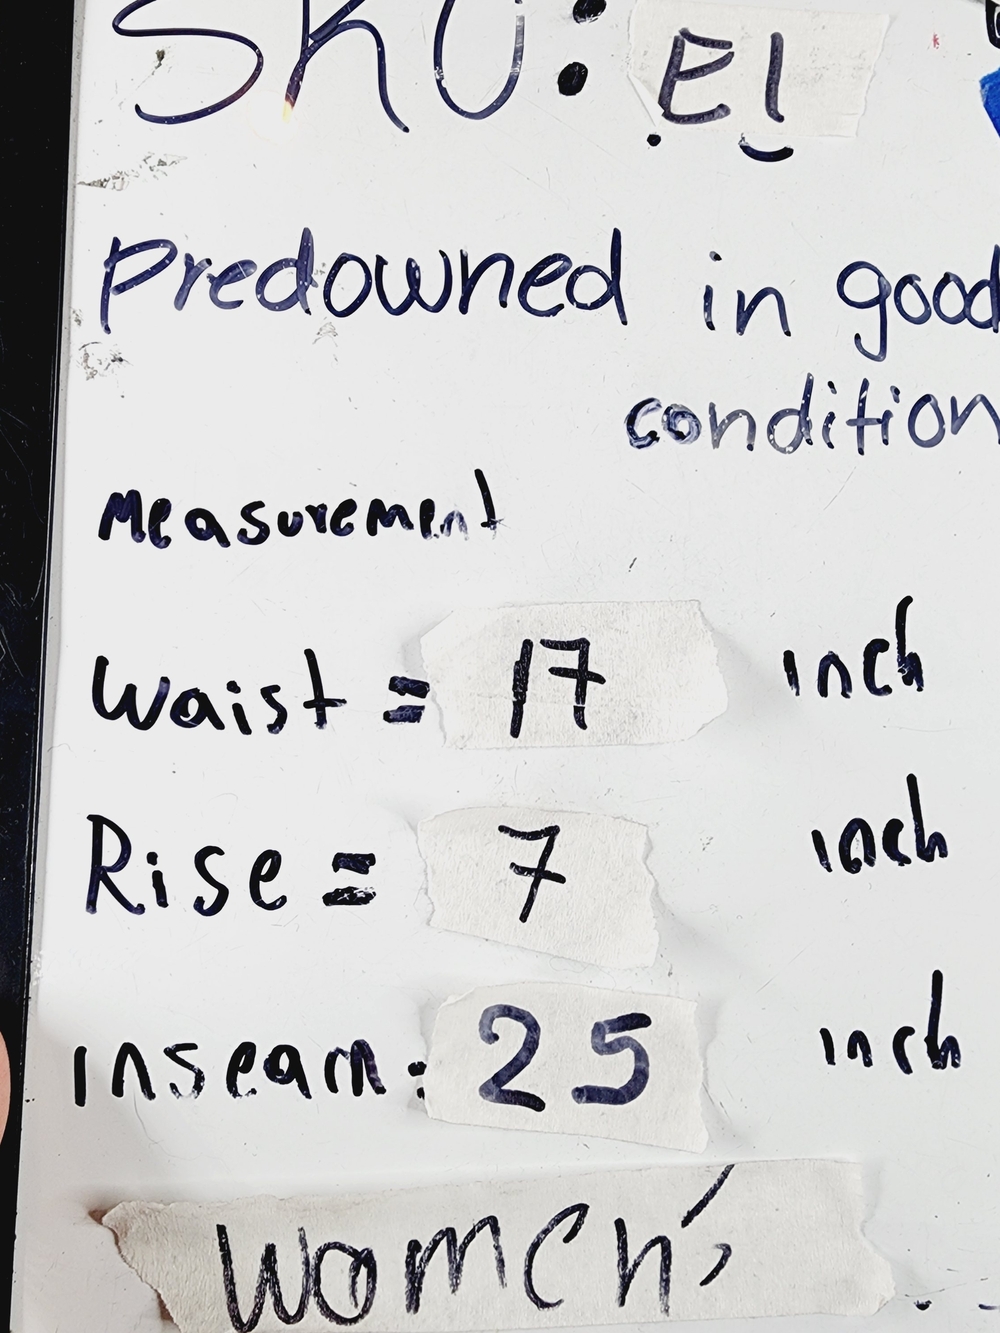 SKU: E1
Predowned in good
condition
Measurement
Waist = 17 inch
Rise = 7 inch
inseam: 25 inch
Women's